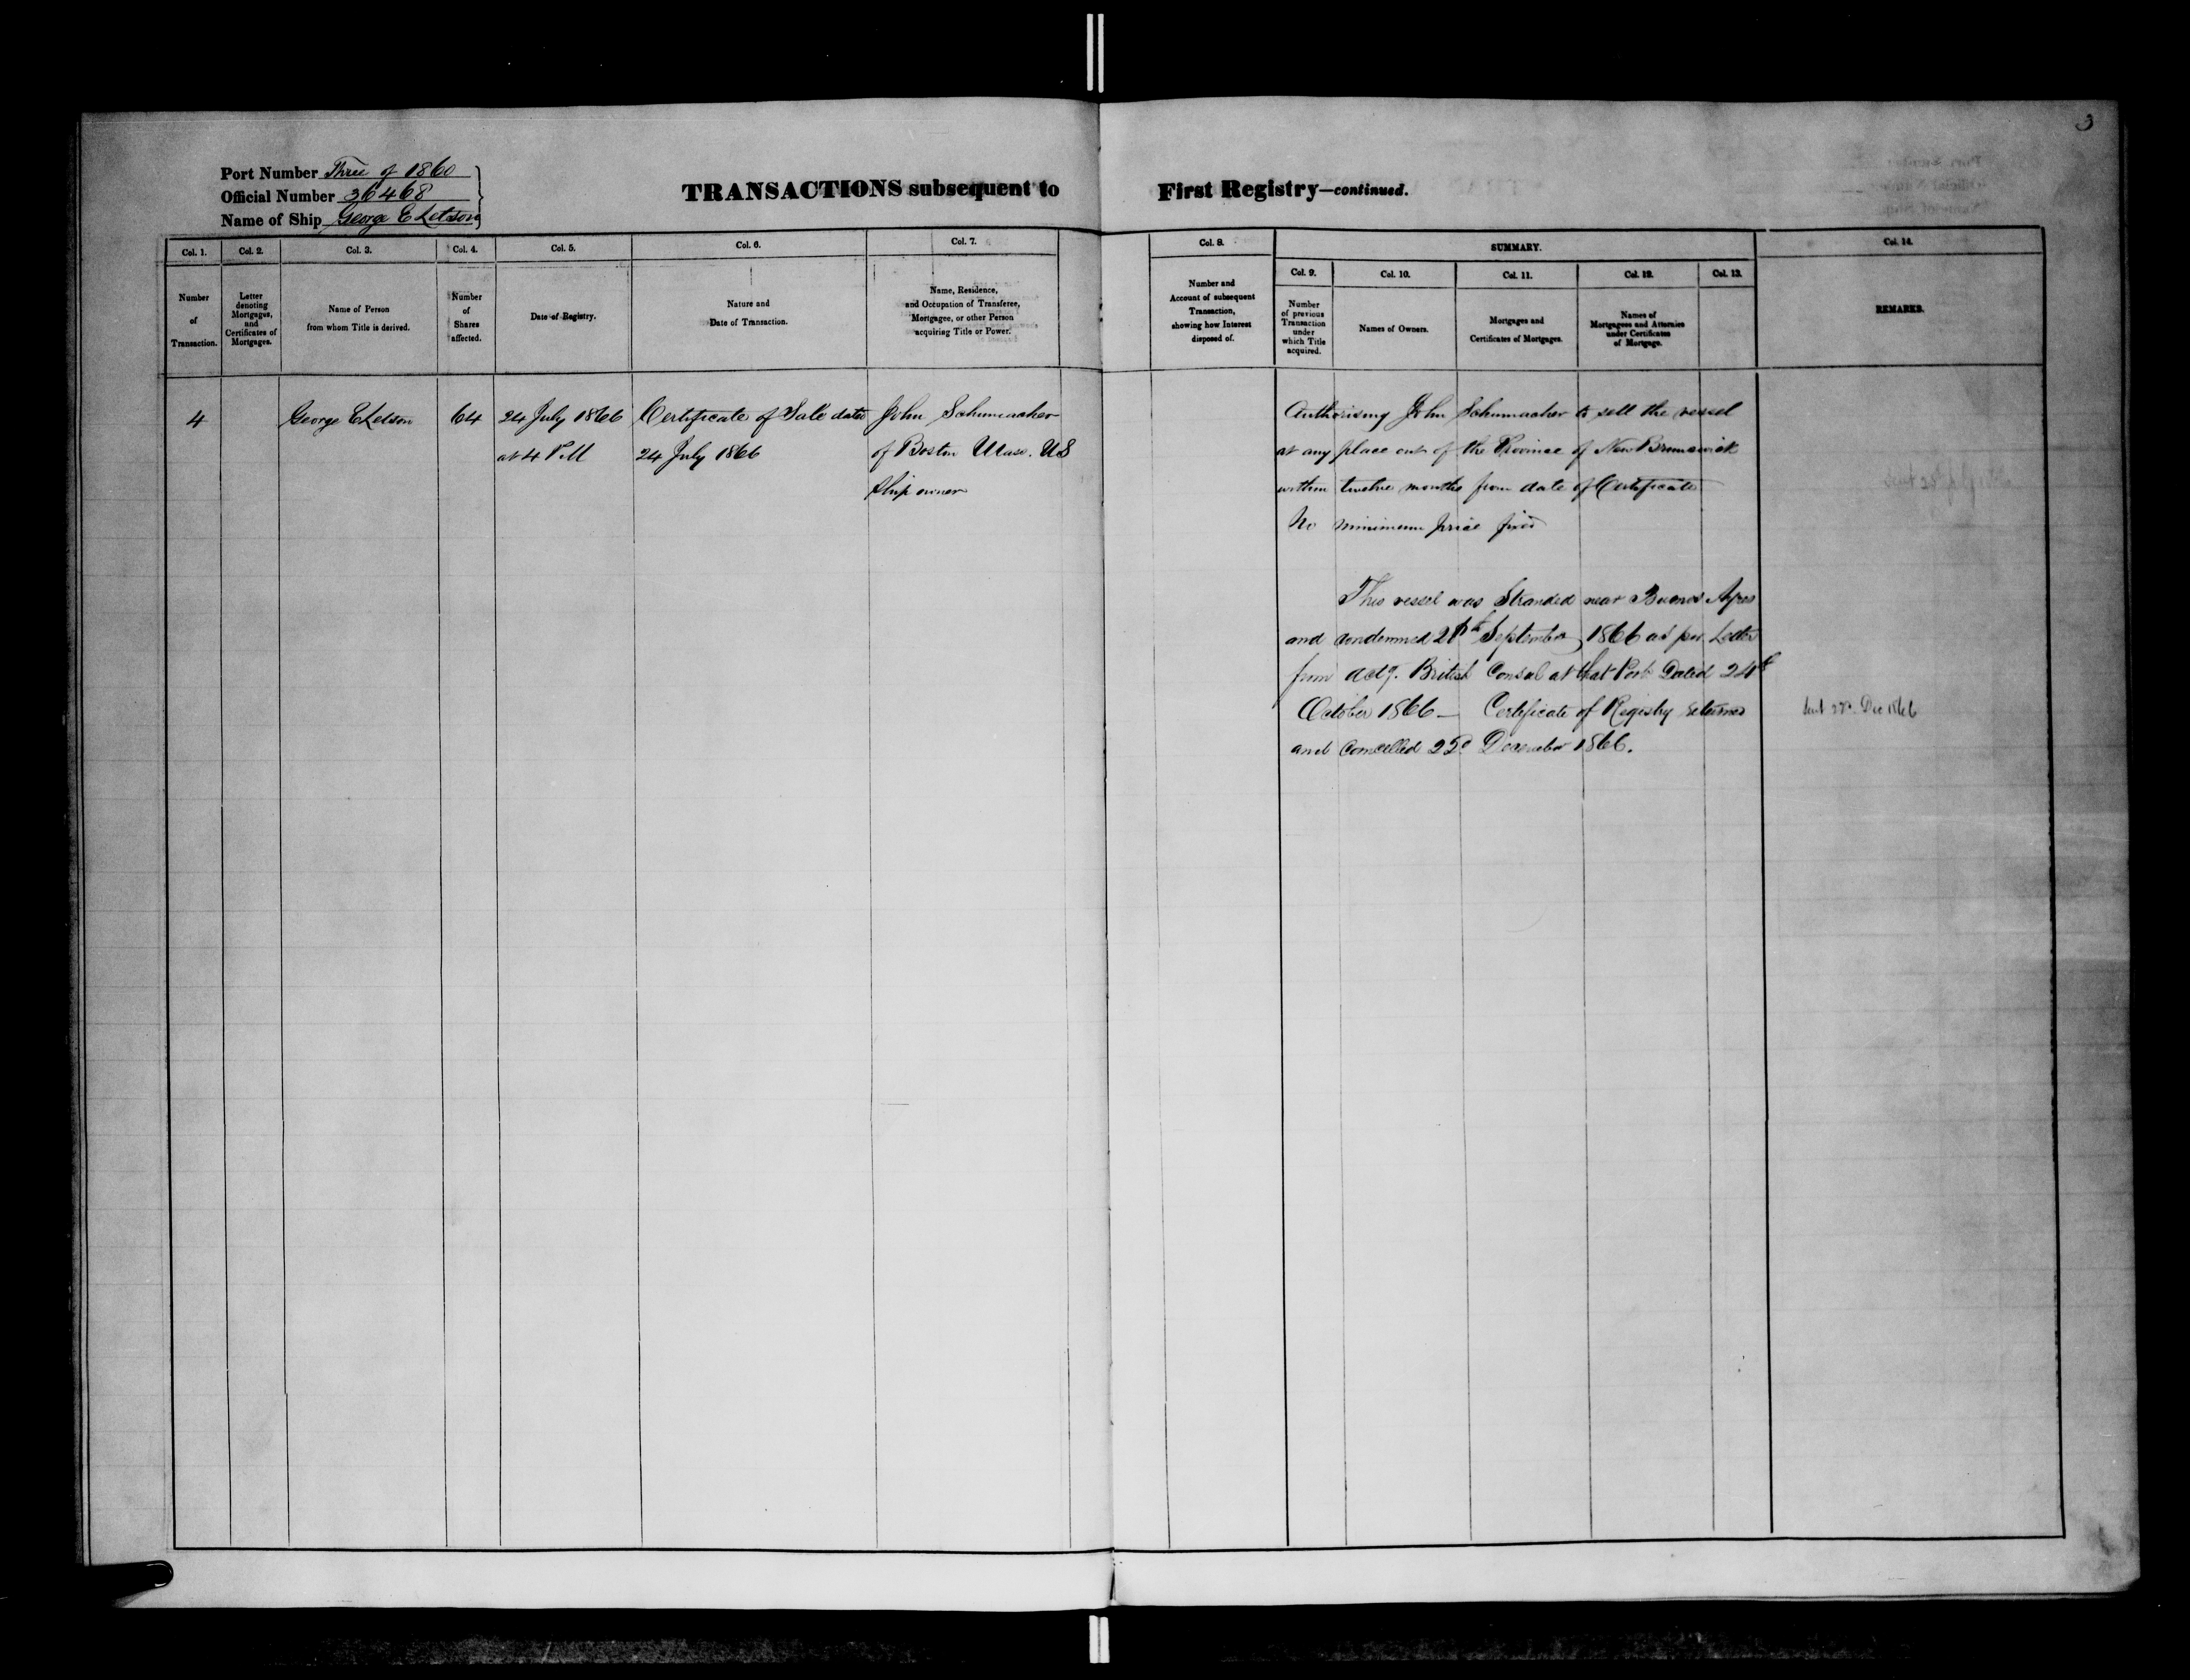 3
Port Number Three of 1860
Official Number 36468
Name of Ship George E Letson
TRANSACTIONS subsequent to First Registry—continued.
Col. 1.
Number
of
Transaction.
Col. 2.
Letter
denoting
Mortgages,
and
Certificates of
Mortgages.
Col. 3.
Name of Person
from whom Title is derived.
Col. 4.
Number
of
Shares
affected.
Col. 5.
Date of Registry.
Col. 6.
Nature and
Date of Transaction.
Col. 7.
Name, Residence,
and Occupation of Transferee,
Mortgagee, or other Person
acquiring Title or Power.
Col. 8.
Number and
Account of subsequent
Transaction,
showing how Interest
disposed of.
SUMMARY.
Col. 9.
Number
of previous
Transaction
under
which Title
acquired.
Col. 10.
Names of Owners.
Col. 11.
Mortgages and
Certificates of Mortgages.
Col. 12.
Names of
Mortgagees and Attornies
under Certificates
of Mortgage.
Col. 13.
Col. 14.
REMARKS.
4
George E Letson
64
24 July 1866
at 4 P.M
Certificate of Sale date
24 July 1866
John Schumacher
of Boston Mass. US
Ship owner
Authorising John Schumacher to sell the vessel
at any place out of the Province of New Brunswick
within twelve months from date of Certificate
No minimum price fixed
This vessel was Stranded near Buenos Ayres
and condemned September 1866 as per Letter
from actg. British Consul at that Port Dated 24th
October 1866 — Certificate of Registry returned
and Cancelled 22d December 1866.
Dec 1866